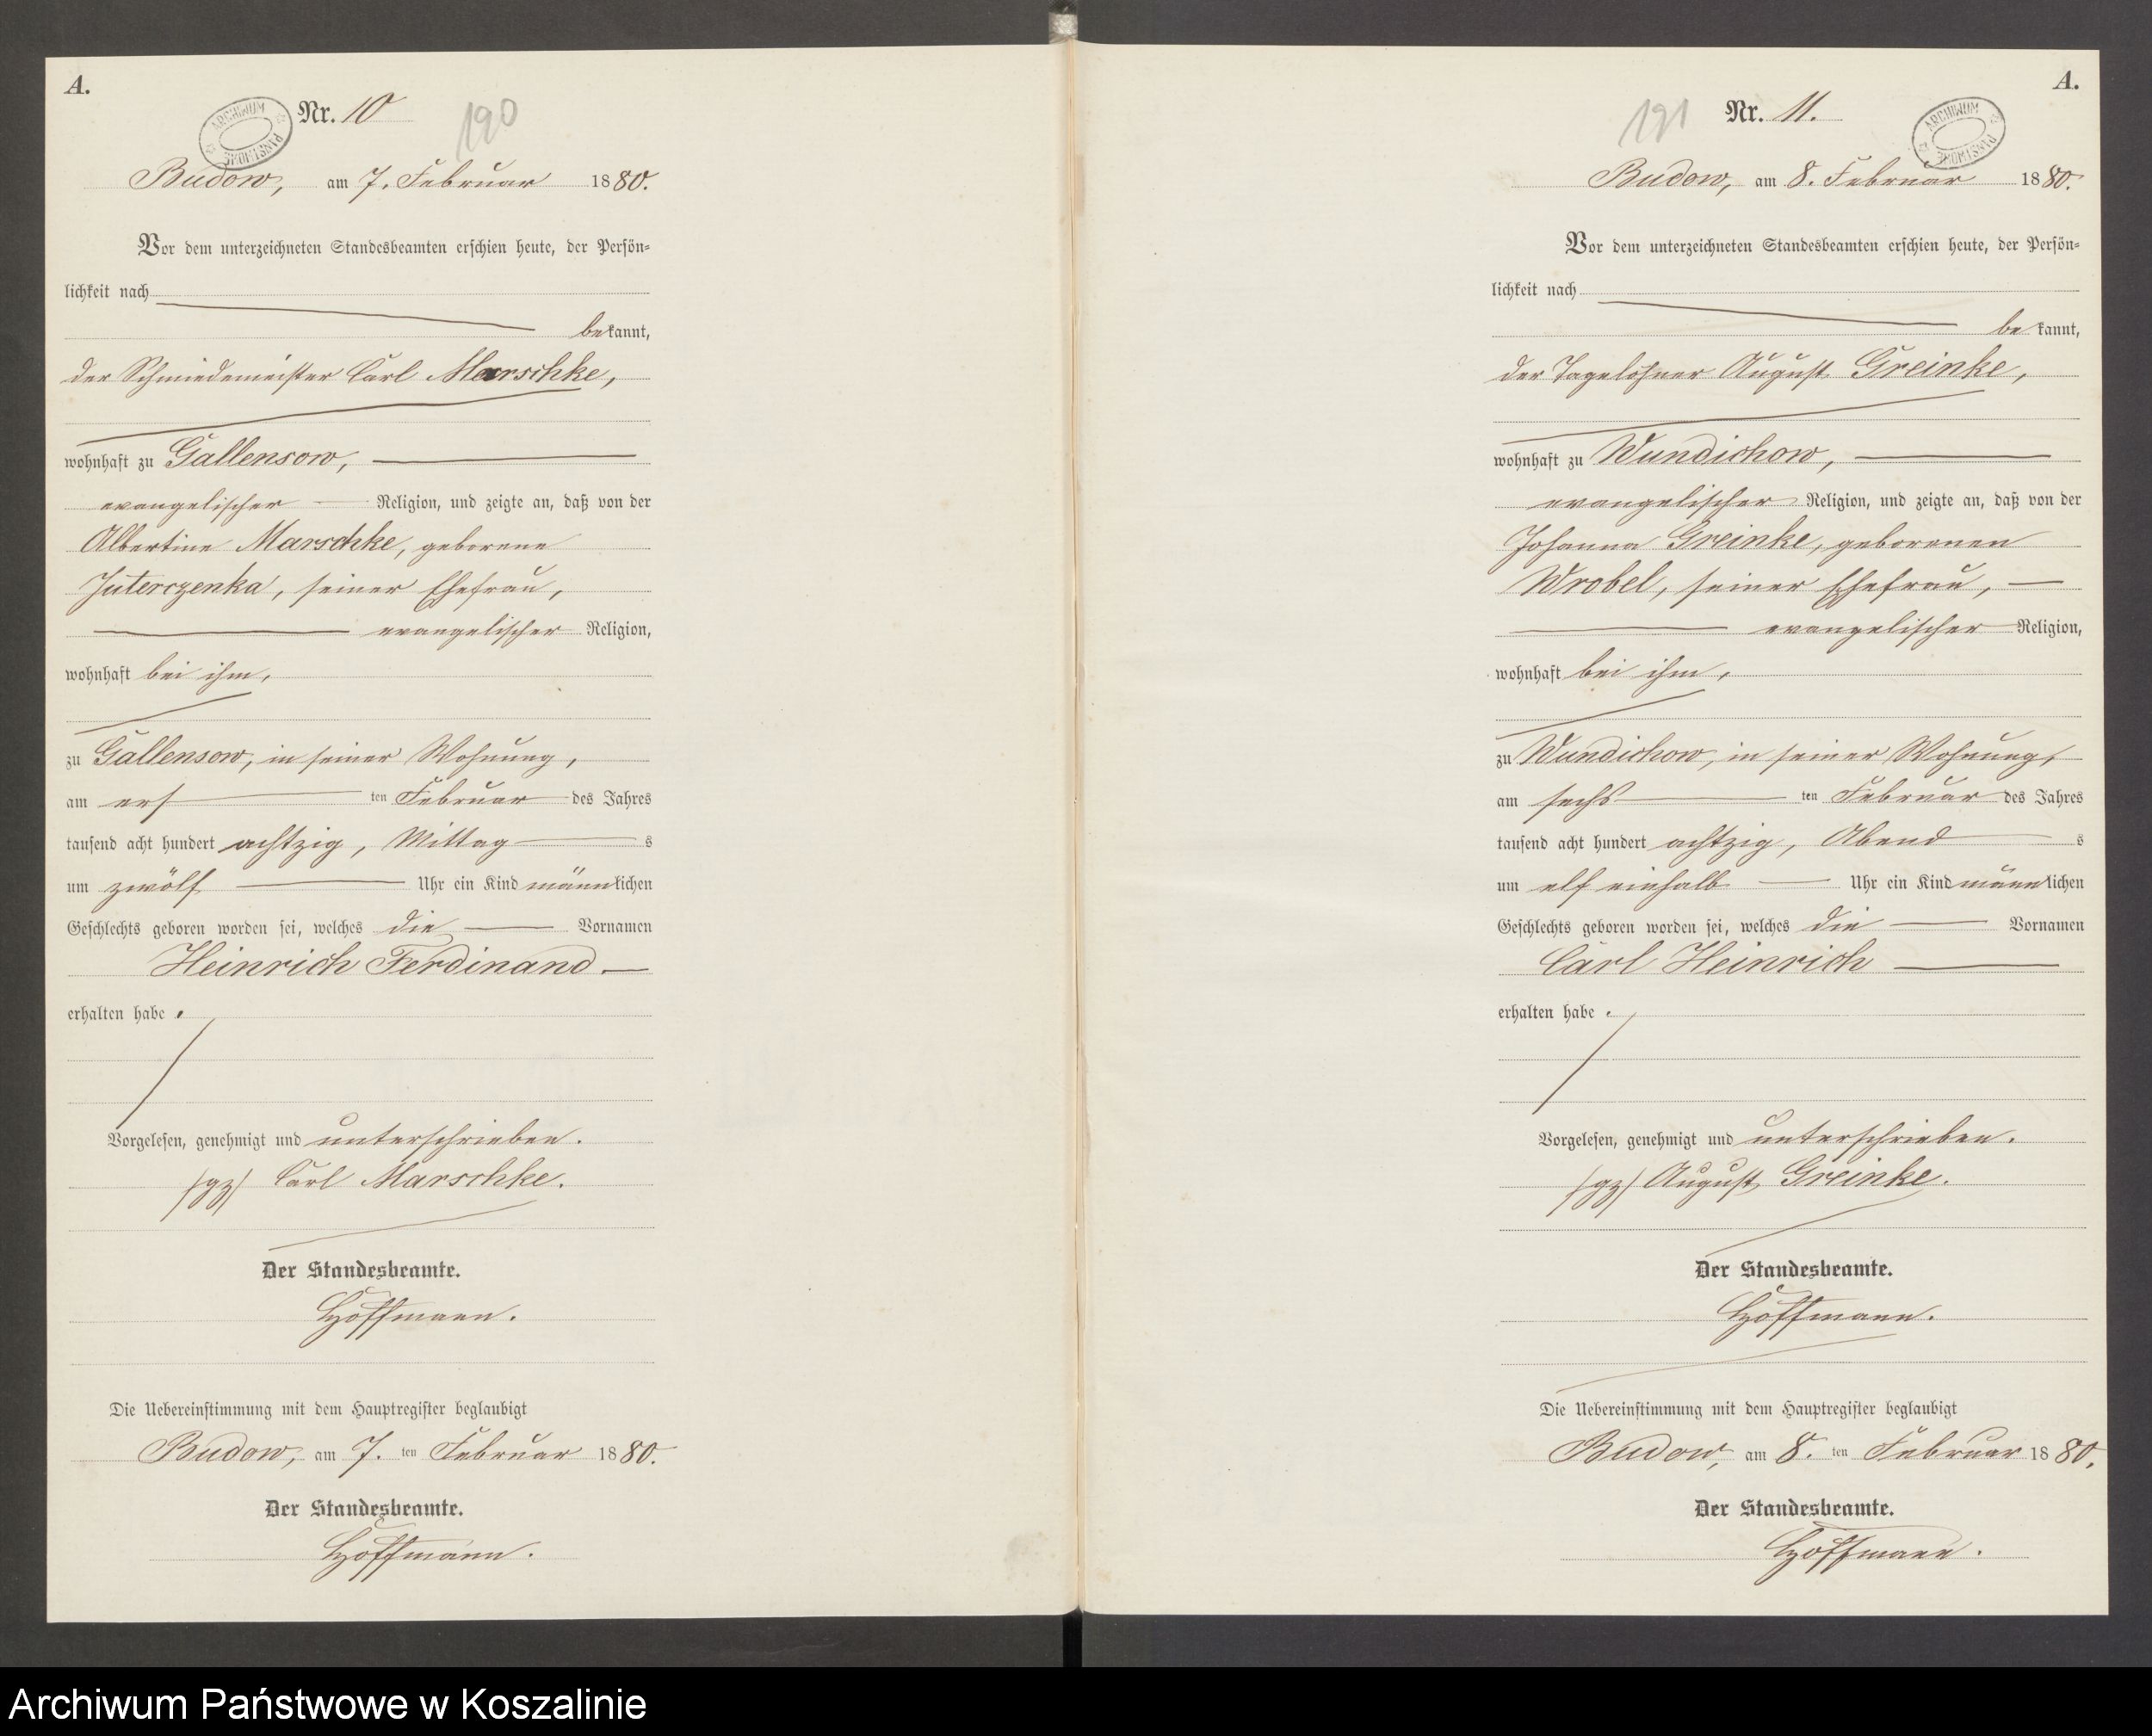 A.
ARCHIWUM PAŃSTWOWE
Nr. 10
190
Budow, am 7. Februar 1880.
Vor dem unterzeichneten Standesbeamten erschien heute, der Persön-
lichkeit nach
bekannt,
der Schmiedemeister Carl Marschke,
wohnhaft zu Gallensow,
evangelischer Religion, und zeigte an, daß von der
Albertine Marschke, geborene
Juterczenka, seiner Ehefrau,
evangelischer Religion,
wohnhaft bei ihm,
zu Gallensow, in seiner Wohnung,
am ersten Februar des Jahres
tausend acht hundert achtzig, Mittags
um zwölf Uhr ein Kind männlichen
Geschlechts geboren worden sei, welches die Vornamen
Heinrich Ferdinand
erhalten habe.
Vorgelesen, genehmigt und unterschrieben.
/gz/ Carl Marschke.
Der Standesbeamte.
Hoffmann.
Die Uebereinstimmung mit dem Hauptregister beglaubigt
Budow, am 7. ten Februar 1880.
Der Standesbeamte.
Hoffmann.
A.
191
Nr. 11.
ARCHIWUM PAŃSTWOWE
Budow, am 8. Februar 1880.
Vor dem unterzeichneten Standesbeamten erschien heute, der Persön-
lichkeit nach
bekannt,
der Tagelöhner August Greinke,
wohnhaft zu Wundichow,
evangelischer Religion, und zeigte an, daß von der
Johanna Greinke, geborenen
Wrobel, seiner Ehefrau,
evangelischer Religion,
wohnhaft bei ihm,
zu Wundichow, in seiner Wohnung,
am sechsten Februar des Jahres
tausend acht hundert achtzig, Abends
um elf einhalb Uhr ein Kind männlichen
Geschlechts geboren worden sei, welches die Vornamen
Carl Heinrich
erhalten habe.
Vorgelesen, genehmigt und unterschrieben.
/gz/ August Greinke.
Der Standesbeamte.
Hoffmann.
Die Uebereinstimmung mit dem Hauptregister beglaubigt
Budow, am 8. ten Februar 1880.
Der Standesbeamte.
Hoffmann.
Archiwum Państwowe w Koszalinie